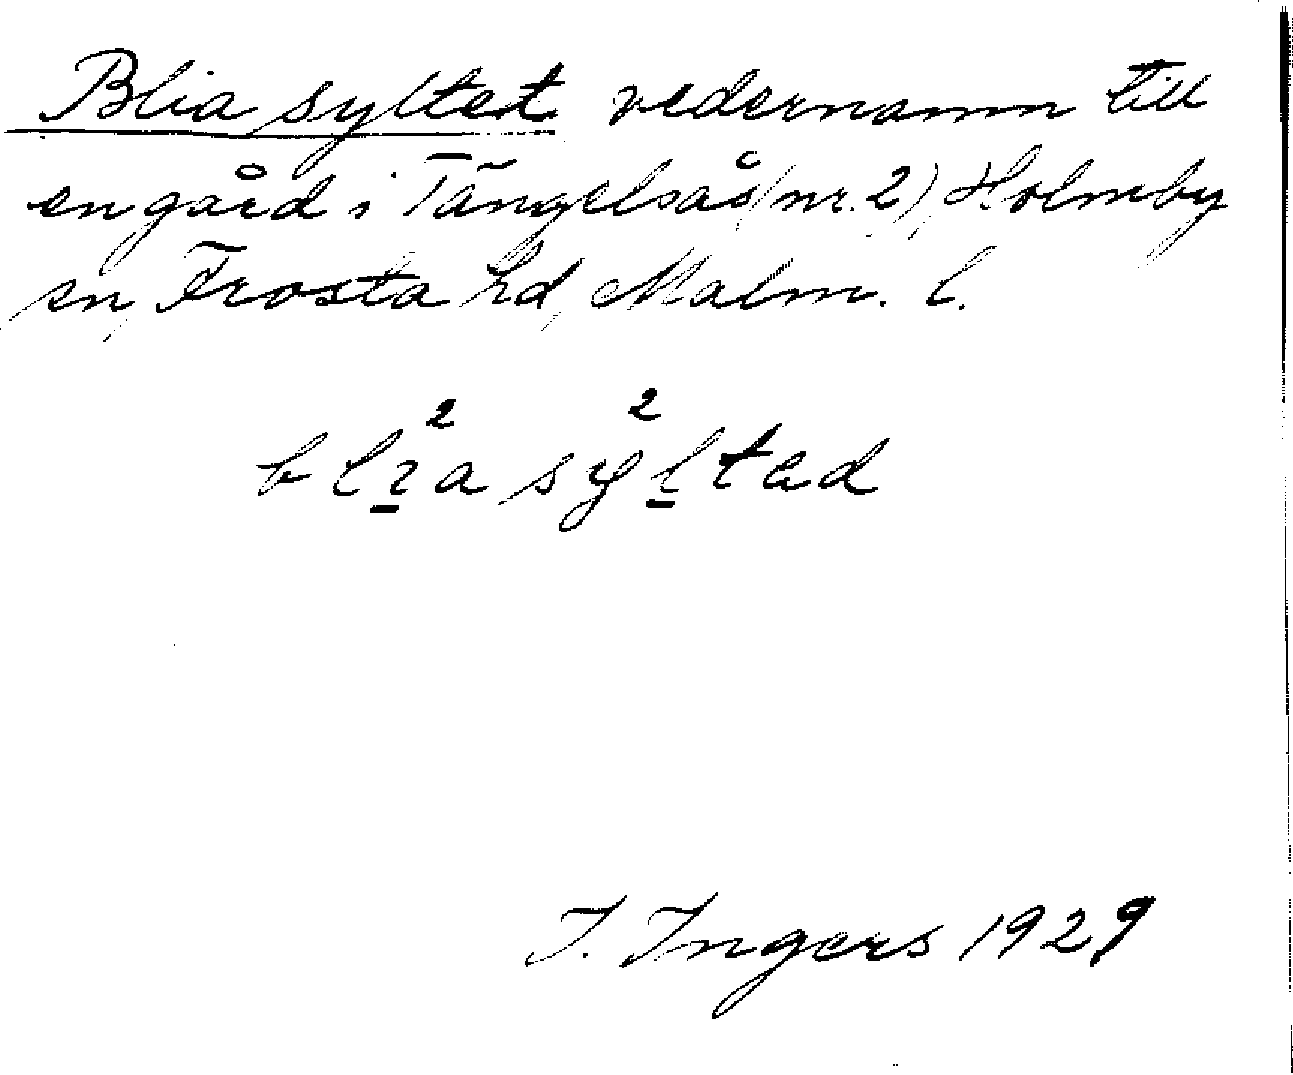 Blia syltet vedernamn till
en gård i Tängelsås (nr. 2), Holmby
sn, Frosta hd, Malm. l.
2 2
blia syltad
I. Ingers 1929